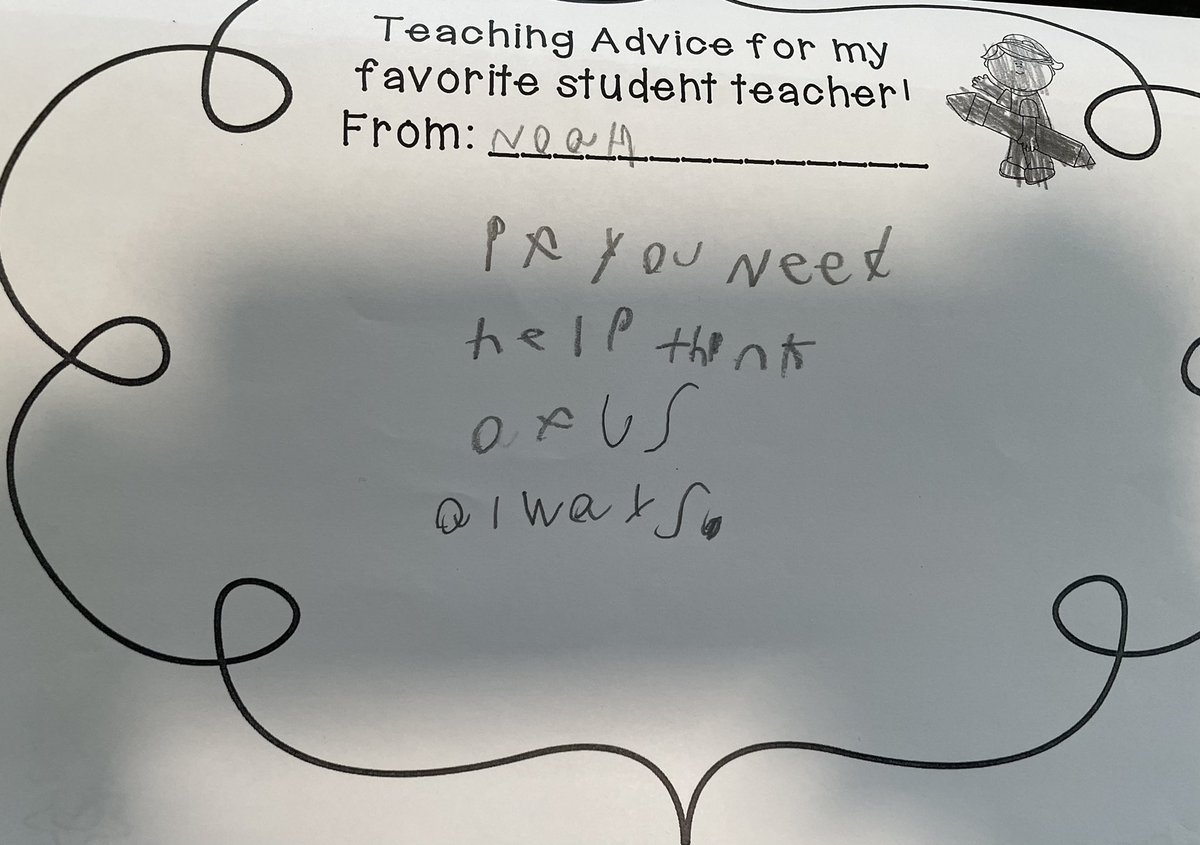 Teaching Advice for my
favorite student teacher!
From: Noah
if you need
help think
of us
always.